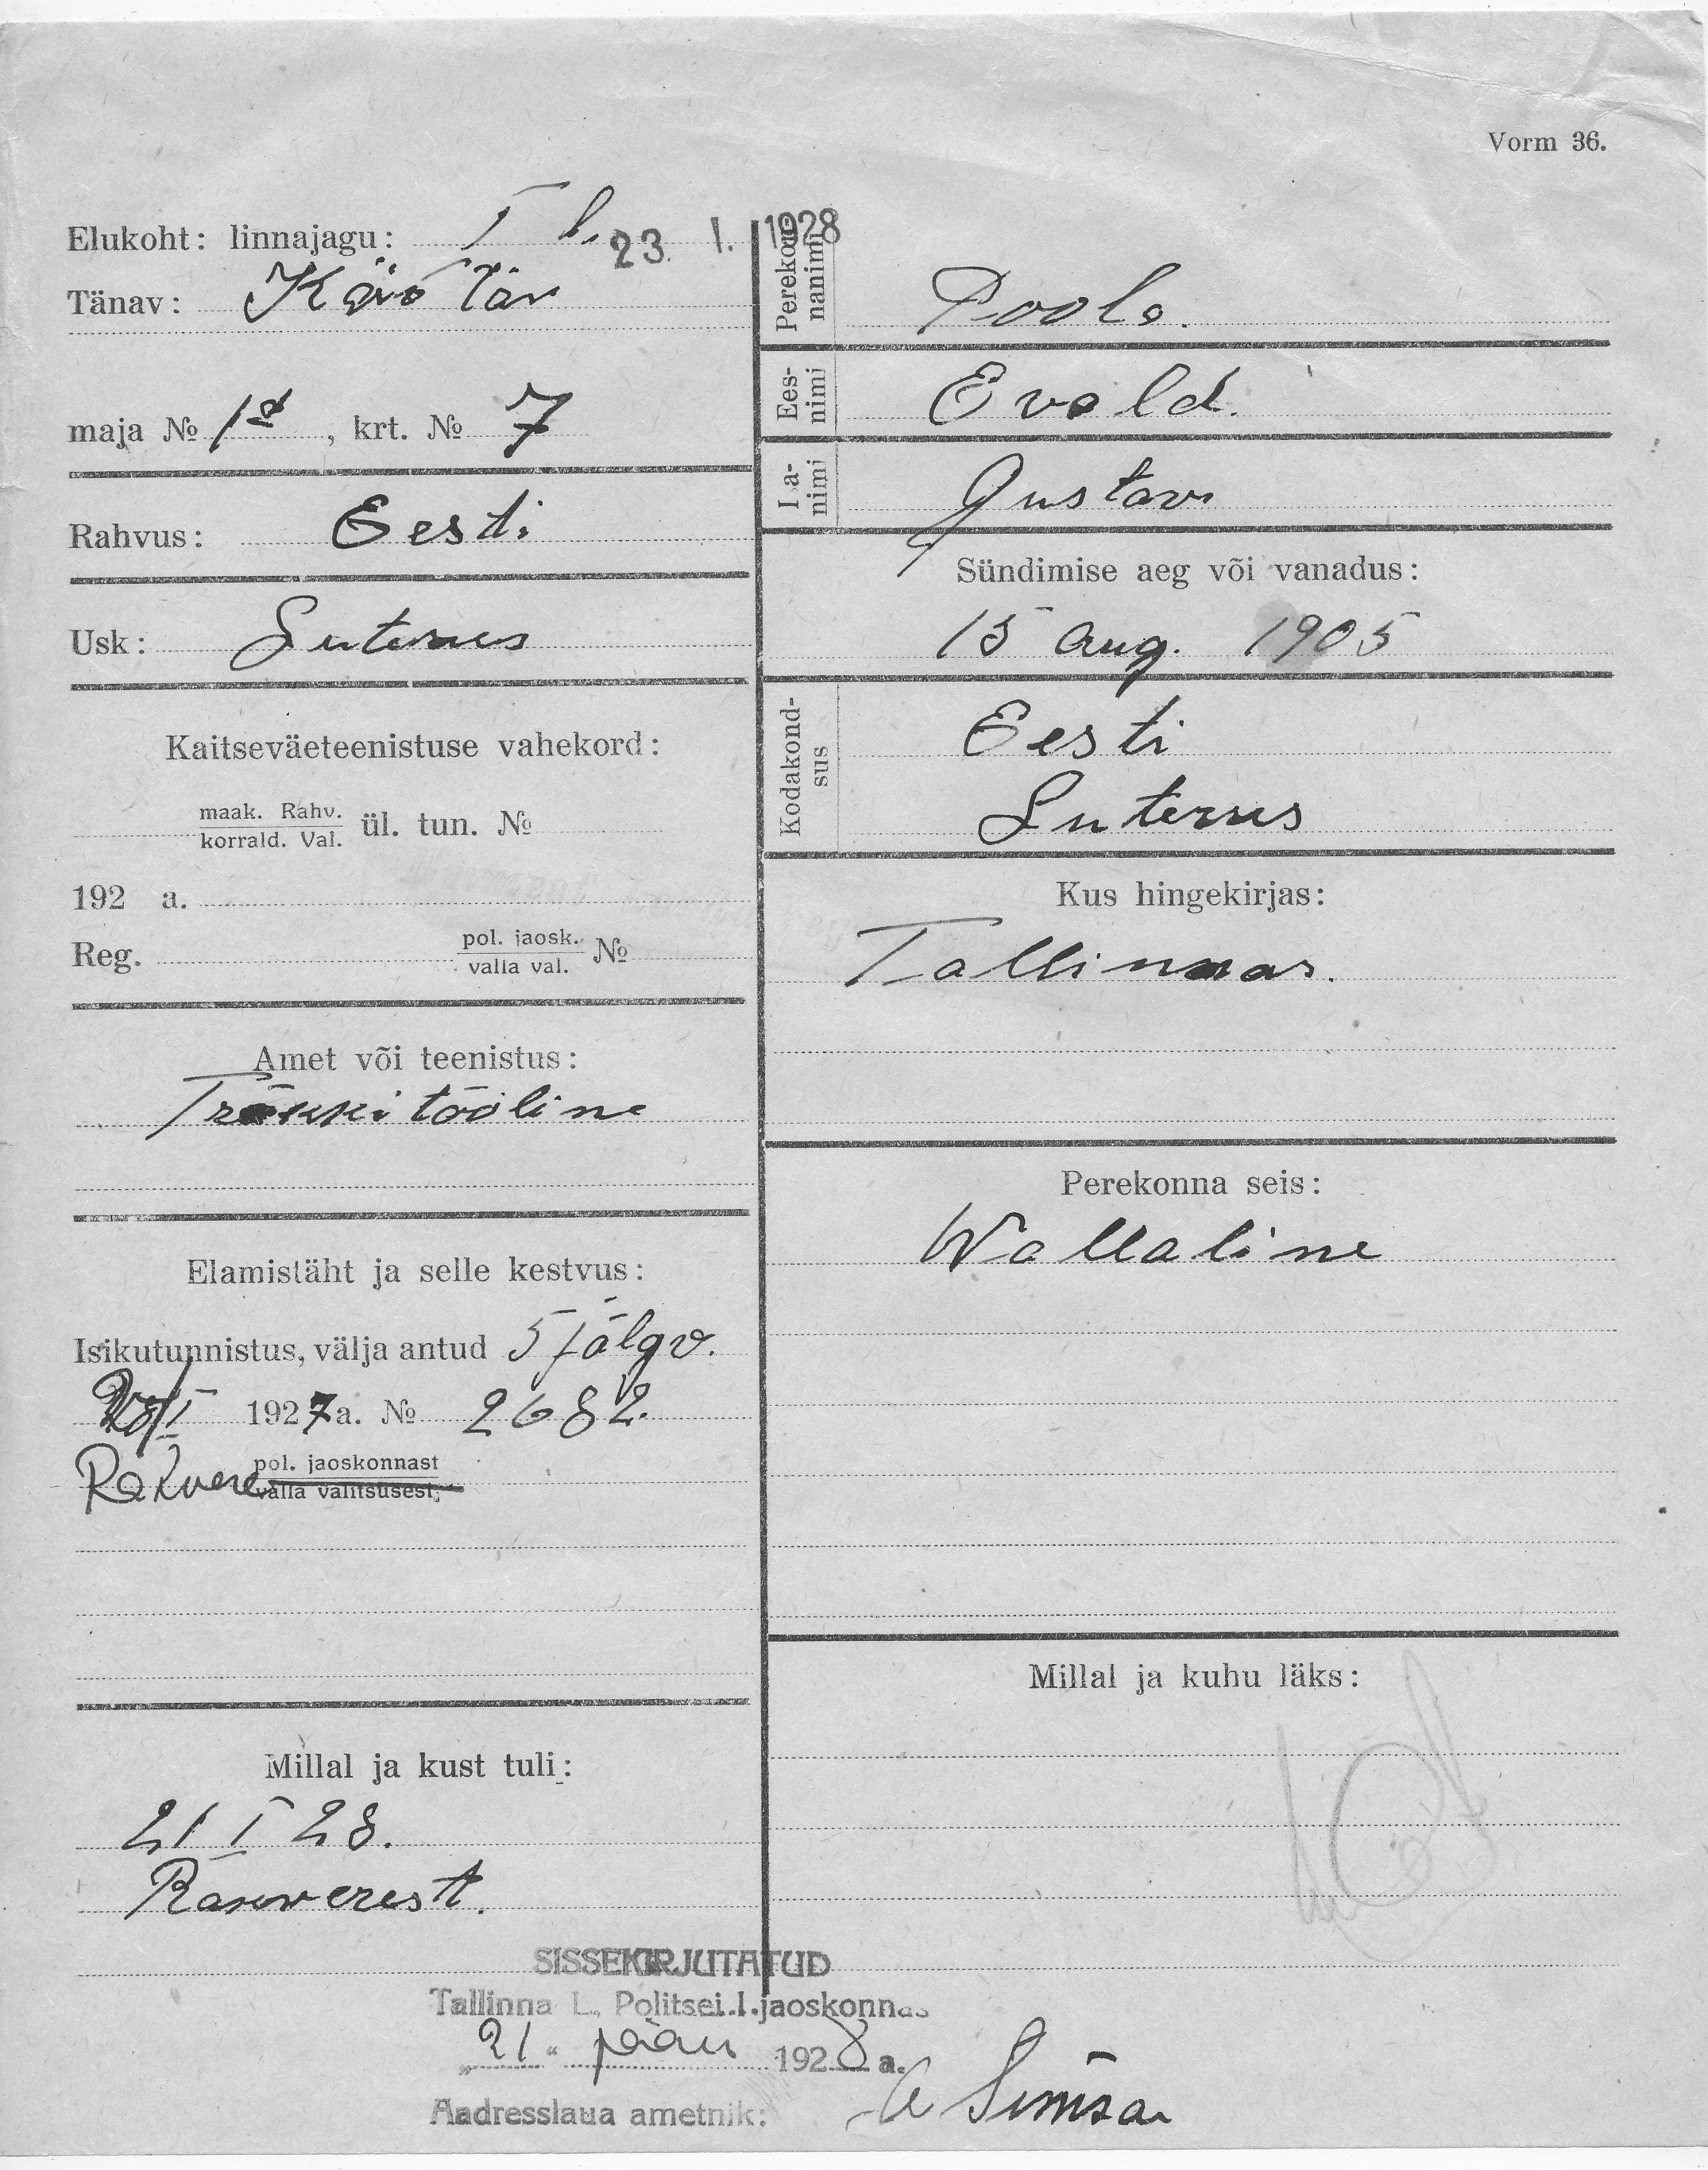 Vorm 36.
Elukoht: linnajagu: I l.
23. I. 1928
Tänav:
maja № 1a, krt. № 7
Rahvus: Eesti
Usk: Luterus
Kaitseväeteenistuse vahekord:
maak. Rahv.
korrald. Val. ül. tun. №
192 a.
Reg. pol. jaosk.
valla val. №
Amet või teenistus:
Trükki tööline
Elamisläht ja selle kestvus:
Isikutunnistus, välja antud
1927 a. № 2682.
Rakvere pol. jaoskonnast
valla valitsusest,
Millal ja kust tuli:
21 I 28.
Rakverest.
Perekonnanimi
Poola.
Eesnimi
Evald.
Isanimi
Gustav
Sündimise aeg või vanadus:
15 aug. 1905
Kodakondsus
Eesti
Luterus
Kus hingekirjas:
Tallinnas.
Perekonna seis:
Wallaline
Millal ja kuhu läks:
SISSEKIRJUTATUD
Tallinna L. Politsei I. jaoskonnas
„21“ jaan 1928 a.
Aadresslaua ametnik: